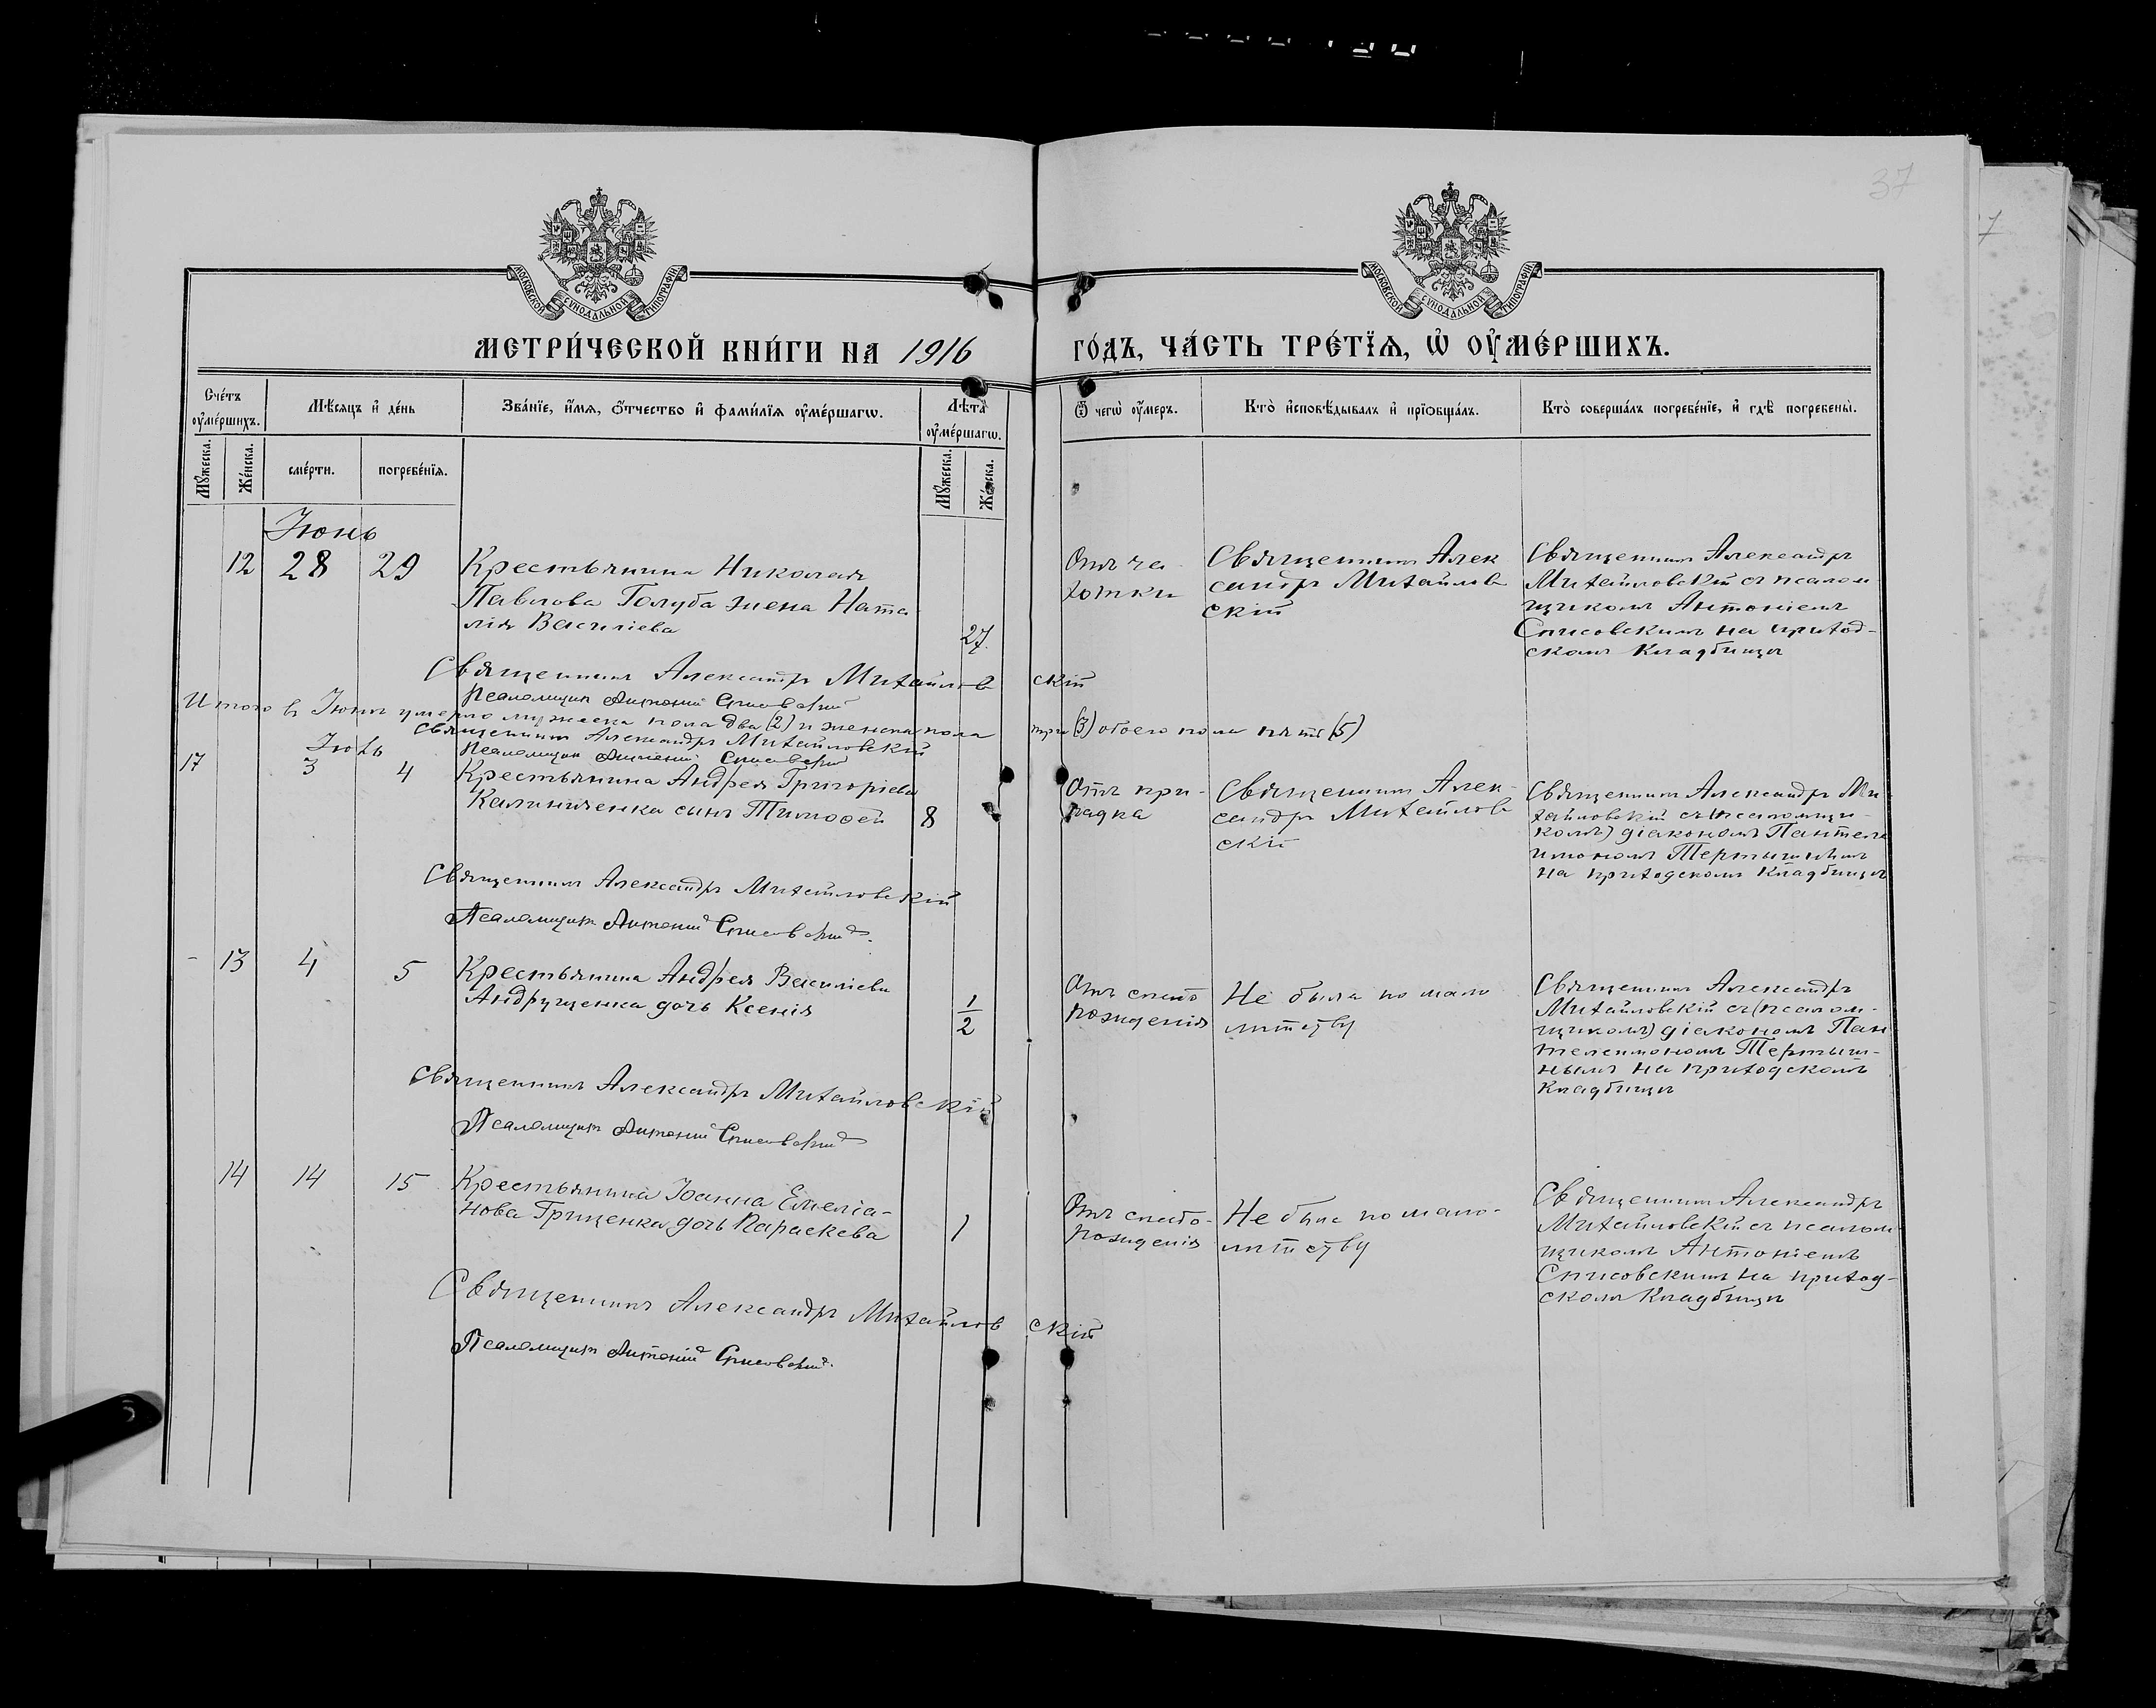 37
МОСКОВСКОЙ СУНОДАЛЬНОЙ ТИПОГРАФІИ
МОСКОВСКОЙ СУНОДАЛЬНОЙ ТИПОГРАФІИ
МЕТРИ́ЧЕСКОЙ КНИ́ГИ НА 1916
ГО́ДЪ, ЧА́СТЬ ТРЕ́ТЇѦ, Ѡ҆ ОУ҆МЕ́РШИХЪ.
Сче́тъ оу҆ме́ршихъ.
Мꙋ́жеска.
Же́нска.
Мѣ́сяцъ и҆ де́нь
сме́рти.
погребе́нїѧ.
Зва́нїе, и҆́мѧ, ѻ҆́тчество и҆ фами́лїѧ оу҆ме́ршагѡ.
Лѣ́та оу҆ме́ршагѡ.
Мꙋ́жеска.
Же́нска.
Ѿ чегѡ̀ оу҆́меръ.
Кто̀ и҆сповѣ́дывалъ и҆ прїѡбща́лъ.
Кто̀ соверша́лъ погребе́нїе, и҆ гдѣ̀ погребены̀.
Іюнь
12 28 29
Крестьянина Николая
Павлова Голуба жена Ната-
лія Василіева
27
Отъ ча-
хотки
Священникъ Алек
сандръ Михайлов
скій
Священникъ Александръ
Михайловскій съ псалом-
щикомъ Антоніемъ
Списовскимъ на приход-
скомъ кладбищѣ
Священникъ Александръ Михайлов скій
Псаломщикъ Антоній Списовскій
Итого въ Іюнѣ умерло мужеска пола два (2) и женска пола три (3) обоего пола пять (5)
Священникъ Александръ Михайловскій
Псаломщикъ Антоній Списовскій
Іюль
17 3 4
Крестьянина Андрея Григоріева
Калиниченка сынъ Тимофей
8
Отъ при-
падка
Священникъ Алек-
сандръ Михайлов
скій
Священникъ Александръ Ми
хайловскій съ (псаломщи-
комъ) діакономъ Пантеле
имономъ Тертышнымъ
на приходскомъ кладбищѣ
Священникъ Александръ Михайловскій
Псаломщикъ Антоній Списовскій
- 13 4 5
Крестьянина Андрея Василіева
Андрущенка дочь Ксенія
1/2
Отъ слабо
рожденія
Не была по мало
лѣтству
Священникъ Александръ
Михайловскій съ (псалом-
щикомъ) діакономъ Пан
телеимономъ Тертыш-
нымъ на приходскомъ
кладбищѣ
Священникъ Александръ Михайловскій
Псаломщикъ Антоній Списовскій
14 14 15
Крестьянина Іоанна Емеліа-
нова Гриценка дочь Параскева
1
Отъ слабо-
рожденія
Не была по мало-
лѣтству
Священникъ Александръ
Михайловскій съ псалом
щикомъ Антоніемъ
Списовскимъ на приход-
скомъ кладбищѣ
Священникъ Александръ Михайлов скій
Псаломщикъ Антоній Списовскій